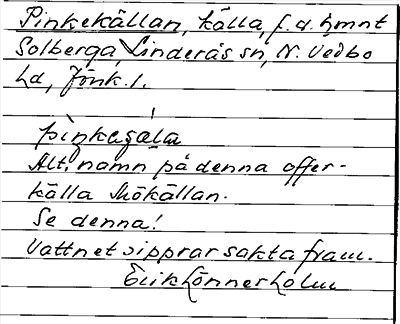 Pinkekällan, källa, f.d. hmnt
Solberga, Linderås sn, N. Vedbo
hd, Jönk. l.
pìnkaɕála
Alt. namn på denna offer-
källa Mökällan.
Se denna!
Vattnet sipprar sakta fram.
Erik Lönnerholm